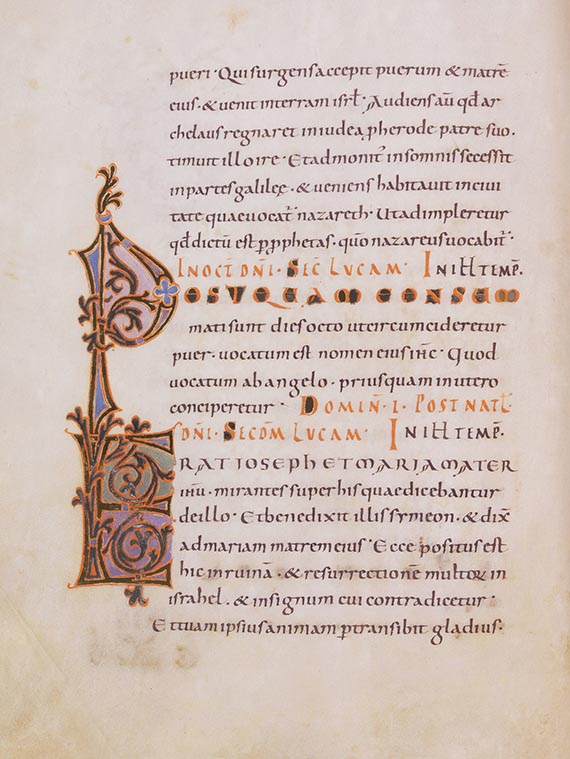 pueri · Qui surgens accepit puerum & matrē
eius · & venit interram isrł · Audiens aū qđ ar
chelaus regnaret iniudea ꝓherode patre suo ·
timuit illo ire · Et admonit᾽ insomnis secessit
inpartes galileę · & veniens habitavit incivi
tate quae vocat᾽ nazareth · Ut adimpleretur
qđ dictū est ꝑ ꝓphetas · qūo nazareus vocabit᾽ ·
IN OCŦ DÑI · SEC̄ LVCAM · IN ILŁ TEMP̄ ·
POSTQUAM CONSUM
mati sunt dies octo ut circumcideretur
puer · vocatum est nomen eius ihc̄ · Quod
vocatum abangelo · priusquam inutero
conciperetur · DOMIÑ · I · POST NATŁ
DÑI · SECDM̄ LVCAM · IN ILŁ TEMP̄ ·
ERAT IOSEPH ET MARIA MATER
ihū · mirantes super his quae dicebantur
deillo · Et benedixit illis symeon · & dix̄
ad mariam matrem eius · Ecce positus est
hic inruinā · & resurrectionē multoꝝ in
israhel · & insignum cui contradicetur ·
Et tuam ipsius animam ꝑtransibit gladius ·